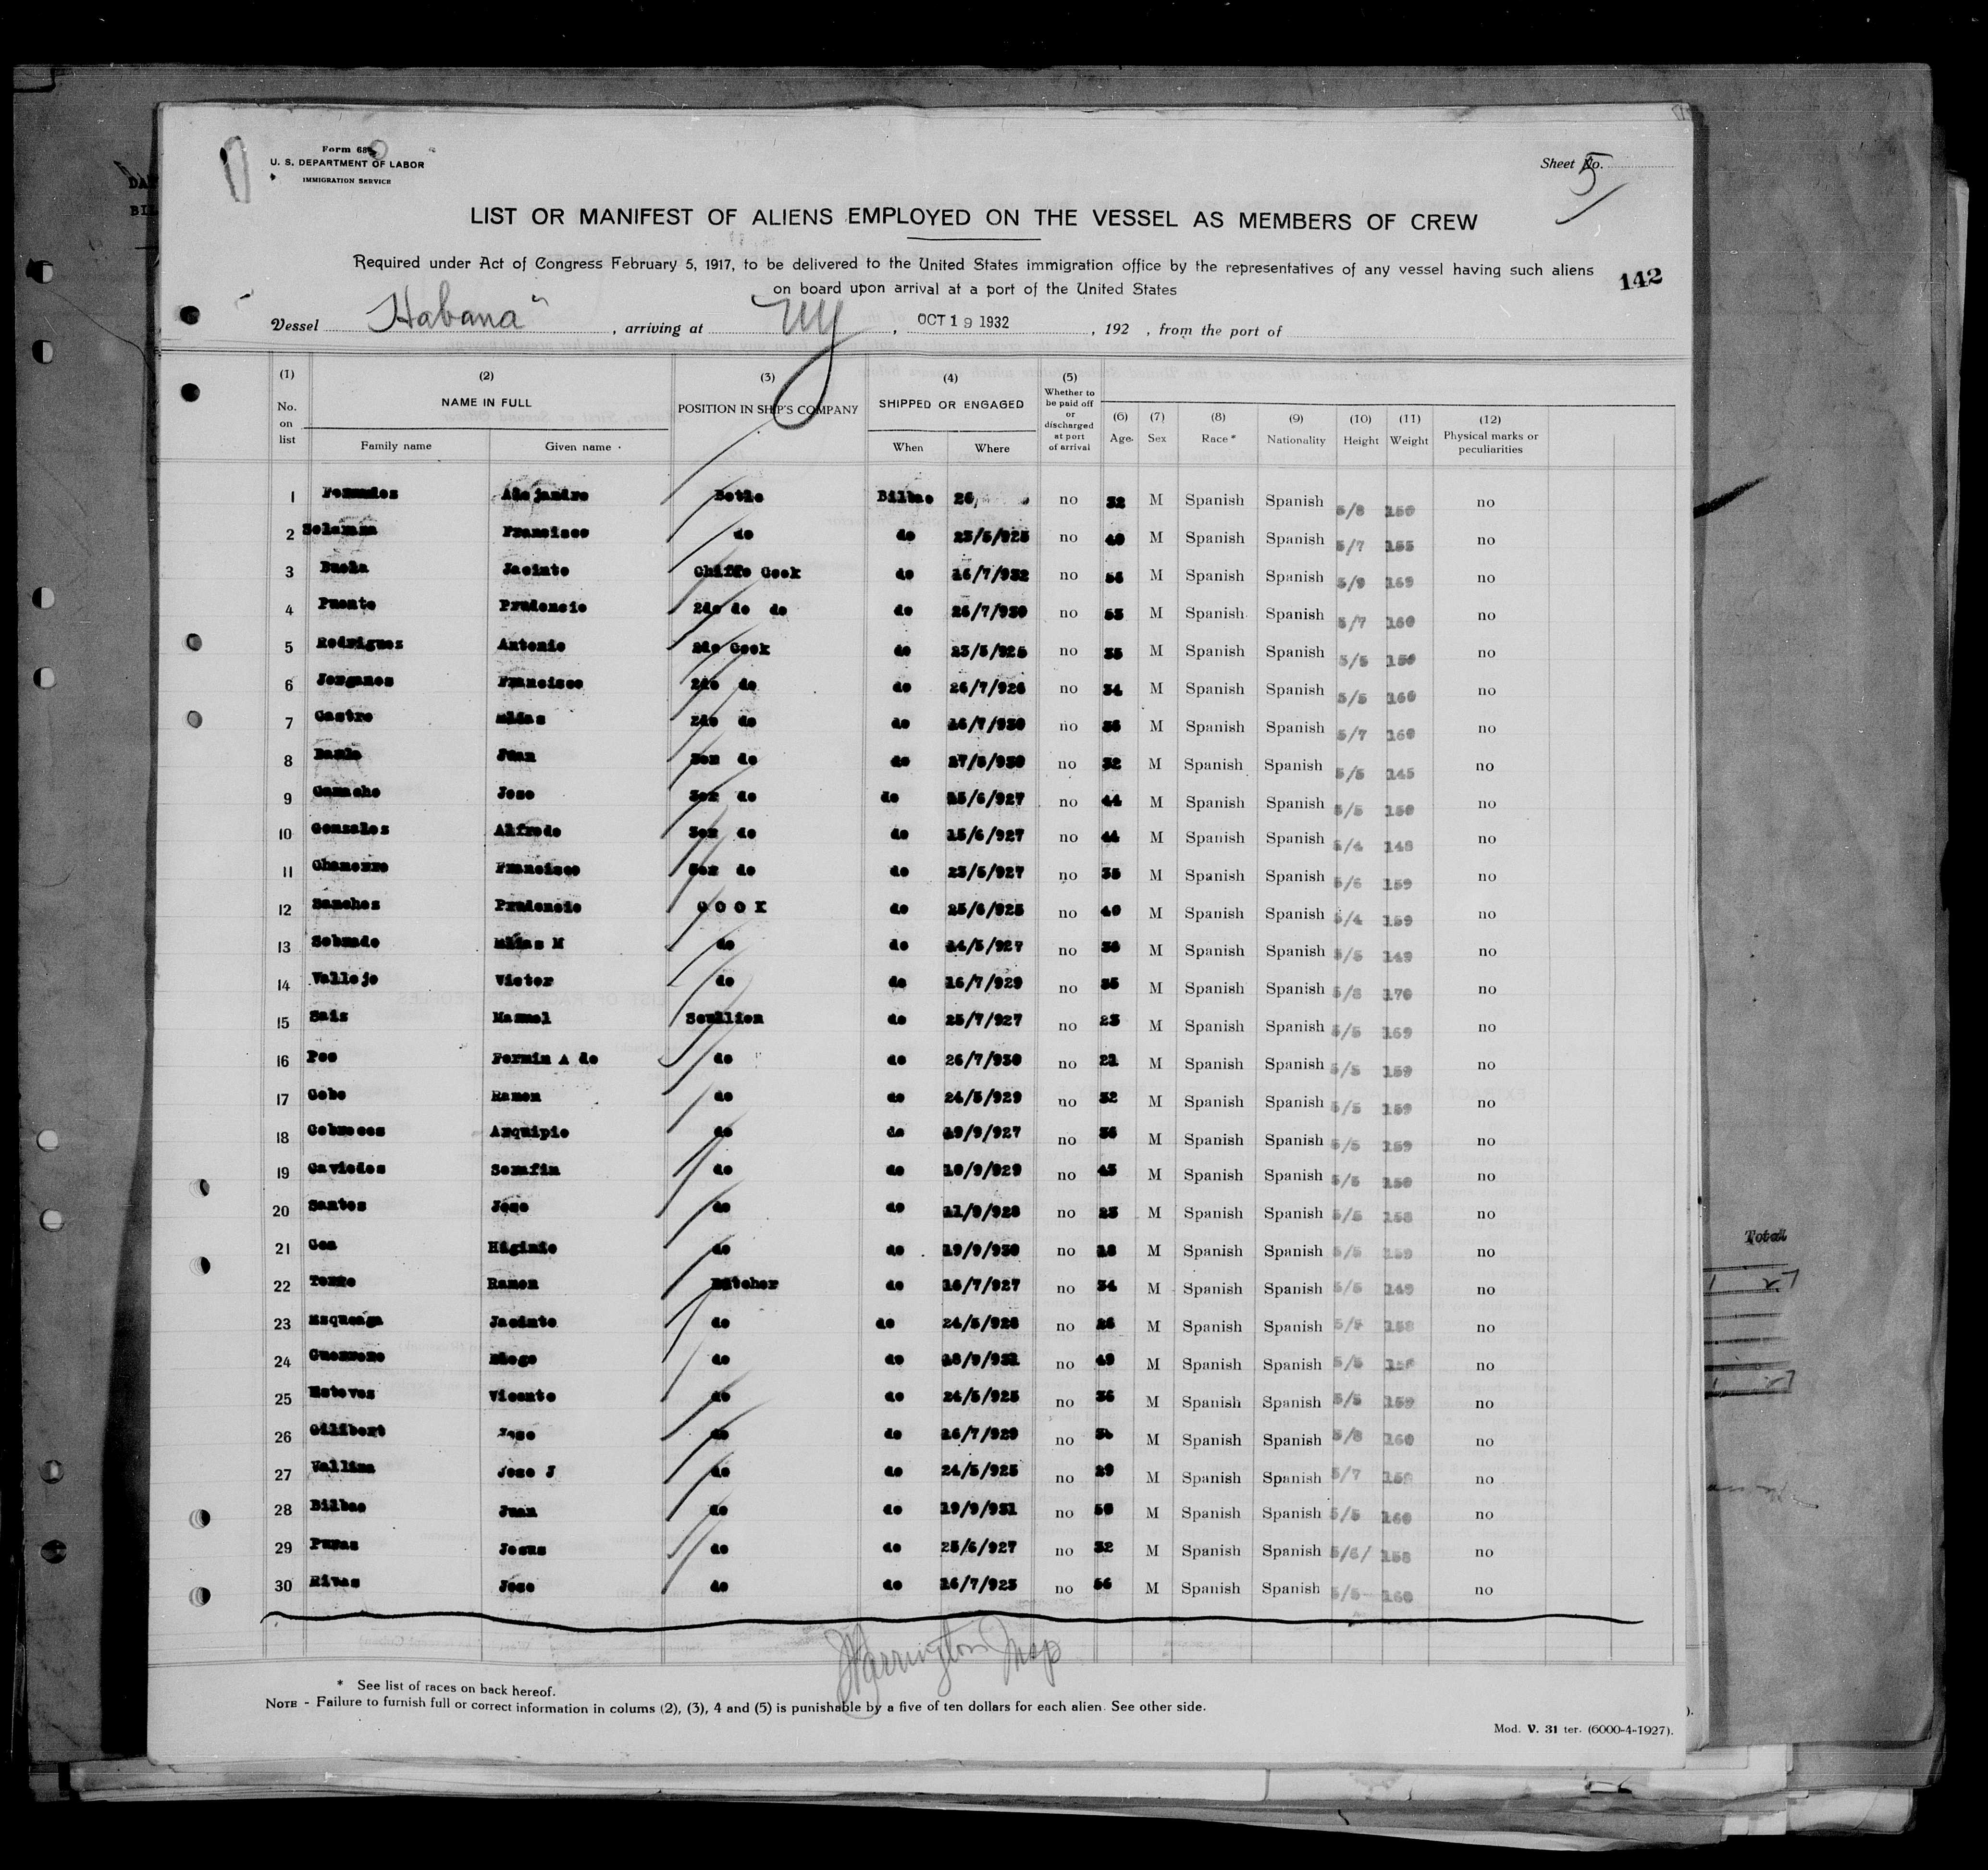 Form 680
U. S. DEPARTMENT OF LABOR
IMMIGRATION SERVICE
Sheet No. 5
LIST OR MANIFEST OF ALIENS EMPLOYED ON THE VESSEL AS MEMBERS OF CREW
Required under Act of Congress February 5, 1917, to be delivered to the United States immigration office by the representatives of any vessel having such aliens
on board upon arrival at a port of the United States
142
Vessel "Habana" , arriving at NY , OCT 19 1932 , 192 , from the port of
(1) No. on list (2) NAME IN FULL Family name Given name (3) POSITION IN SHIP'S COMPANY (4) SHIPPED OR ENGAGED When Where (5) Whether to be paid off or discharged at port of arrival (6) Age (7) Sex (8) Race * (9) Nationality (10) Height (11) Weight (12) Physical marks or peculiarities
1 Alejandro Bilbao 26, no 32 M Spanish Spanish 5/8 150 no
2 Francisco do do 23/5/925 no 40 M Spanish Spanish 5/7 155 no
3 Jacinto Chiffe Cook do 16/7/932 no 56 M Spanish Spanish 5/9 169 no
4 Puente Prudencio 2do do do do 26/7/930 no 53 M Spanish Spanish 5/7 160 no
5 Rodriguez Antonio 2do Cook do 23/5/925 no 35 M Spanish Spanish 5/5 150 no
6 Jorganes Francisco 2do do do 26/7/926 no 34 M Spanish Spanish 5/5 160 no
7 Castro 2do do do 16/7/930 no 36 M Spanish Spanish 5/7 160 no
8 Juan 3er do do 27/5/930 no 32 M Spanish Spanish 5/5 145 no
9 Camacho Jose 3er do do 25/6/927 no 44 M Spanish Spanish 5/5 150 no
10 Gonzalez Alfredo 3er do do 15/6/927 no 44 M Spanish Spanish 5/4 148 no
11 Francisco 3er do do 23/5/927 no 35 M Spanish Spanish 5/6 159 no
12 Sanchez Prudencio COOK do 25/6/925 no 40 M Spanish Spanish 5/4 159 no
13 Sobrado M do do 24/5/927 no 36 M Spanish Spanish 5/5 149 no
14 Vallejo Victor do do 16/7/929 no 35 M Spanish Spanish 5/8 170 no
15 Saiz Manuel Scullion do 25/7/927 no 23 M Spanish Spanish 5/5 169 no
16 Poo Fermin A do do do 26/7/930 no 22 M Spanish Spanish 5/5 159 no
17 Cobo Ramon do do 24/5/929 no 32 M Spanish Spanish 5/5 159 no
18 Cobreces do do 19/9/927 no 36 M Spanish Spanish 5/5 159 no
19 Caviedes Serafin do do 10/9/929 no 45 M Spanish Spanish 5/5 150 no
20 Santos Jose do do 11/9/928 no 23 M Spanish Spanish 5/5 158 no
21 Higinio do do 19/9/930 no 18 M Spanish Spanish 5/5 159 no
22 Ramon Butcher do 16/7/927 no 34 M Spanish Spanish 5/5 149 no
23 Jacinto do do 24/5/928 no 26 M Spanish Spanish 158 no
24 Guerrero Diego do do 18/9/931 no 49 M Spanish Spanish 5/5 no
25 Esteves Vicente do do 24/5/925 no 36 M Spanish Spanish 5/5 159 no
26 Gilibert Jose do do 26/7/929 no 34 M Spanish Spanish 5/8 160 no
27 Vallina Jose J do do 24/5/925 no 29 M Spanish Spanish 5/7 158 no
28 Bilbao Juan do do 19/9/931 no 50 M Spanish Spanish 5/5 160 no
29 Puras Jesus do do 25/6/927 no 32 M Spanish Spanish 5/6/ 158 no
30 Rivas Jose do do 16/7/925 no 56 M Spanish Spanish 5/5 160 no
Total
Warrington Insp
* See list of races on back hereof.
NOTE - Failure to furnish full or correct information in colums (2), (3), 4 and (5) is punishable by a five of ten dollars for each alien. See other side.
Mod. V. 31 ter. (6000-4-1927).